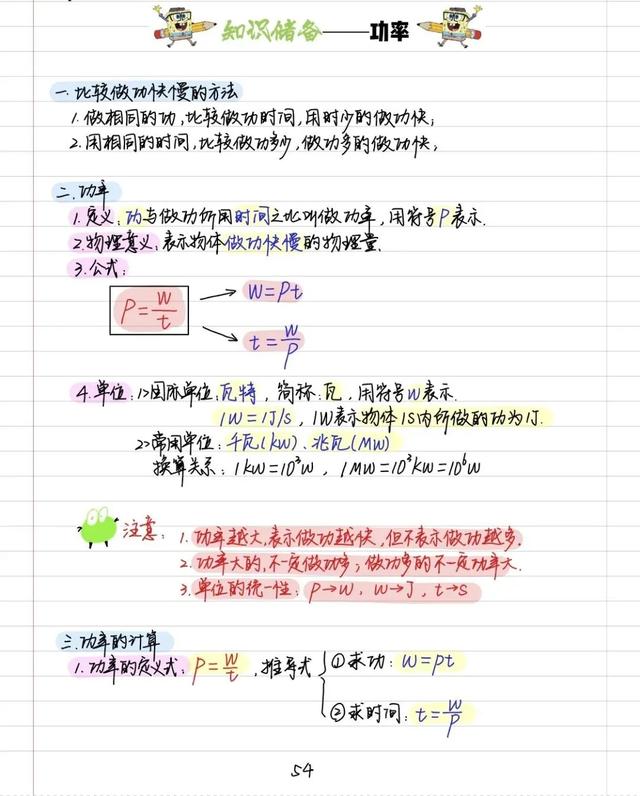 知识储备——功率
一.比较做功快慢的方法
1.做相同的功,比较做功时间,用时少的做功快;
2.用相同的时间,比较做功多少,做功多的做功快;
二.功率
1.定义:功与做功所用时间之比叫做功率,用符号P表示.
2.物理意义:表示物体做功快慢的物理量.
3.公式:
P=W/t
W=Pt
t=W/P
4.单位:1>国际单位:瓦特,简称:瓦,用符号W表示.
1W=1J/s,1W表示物体1s内所做的功为1J.
2>常用单位:千瓦(kW).兆瓦(MW)
换算关系:1kW=10³W,1MW=10³kW=10⁶W
注意:1.功率越大,表示做功越快,但不表示做功越多.
2.功率大的,不一定做功多;做功多的不一定功率大.
3.单位的统一性:P→W,W→J,t→s
三.功率的计算
1.功率的定义式:P=W/t,推导式{①求功:W=Pt
②求时间:t=W/P
54